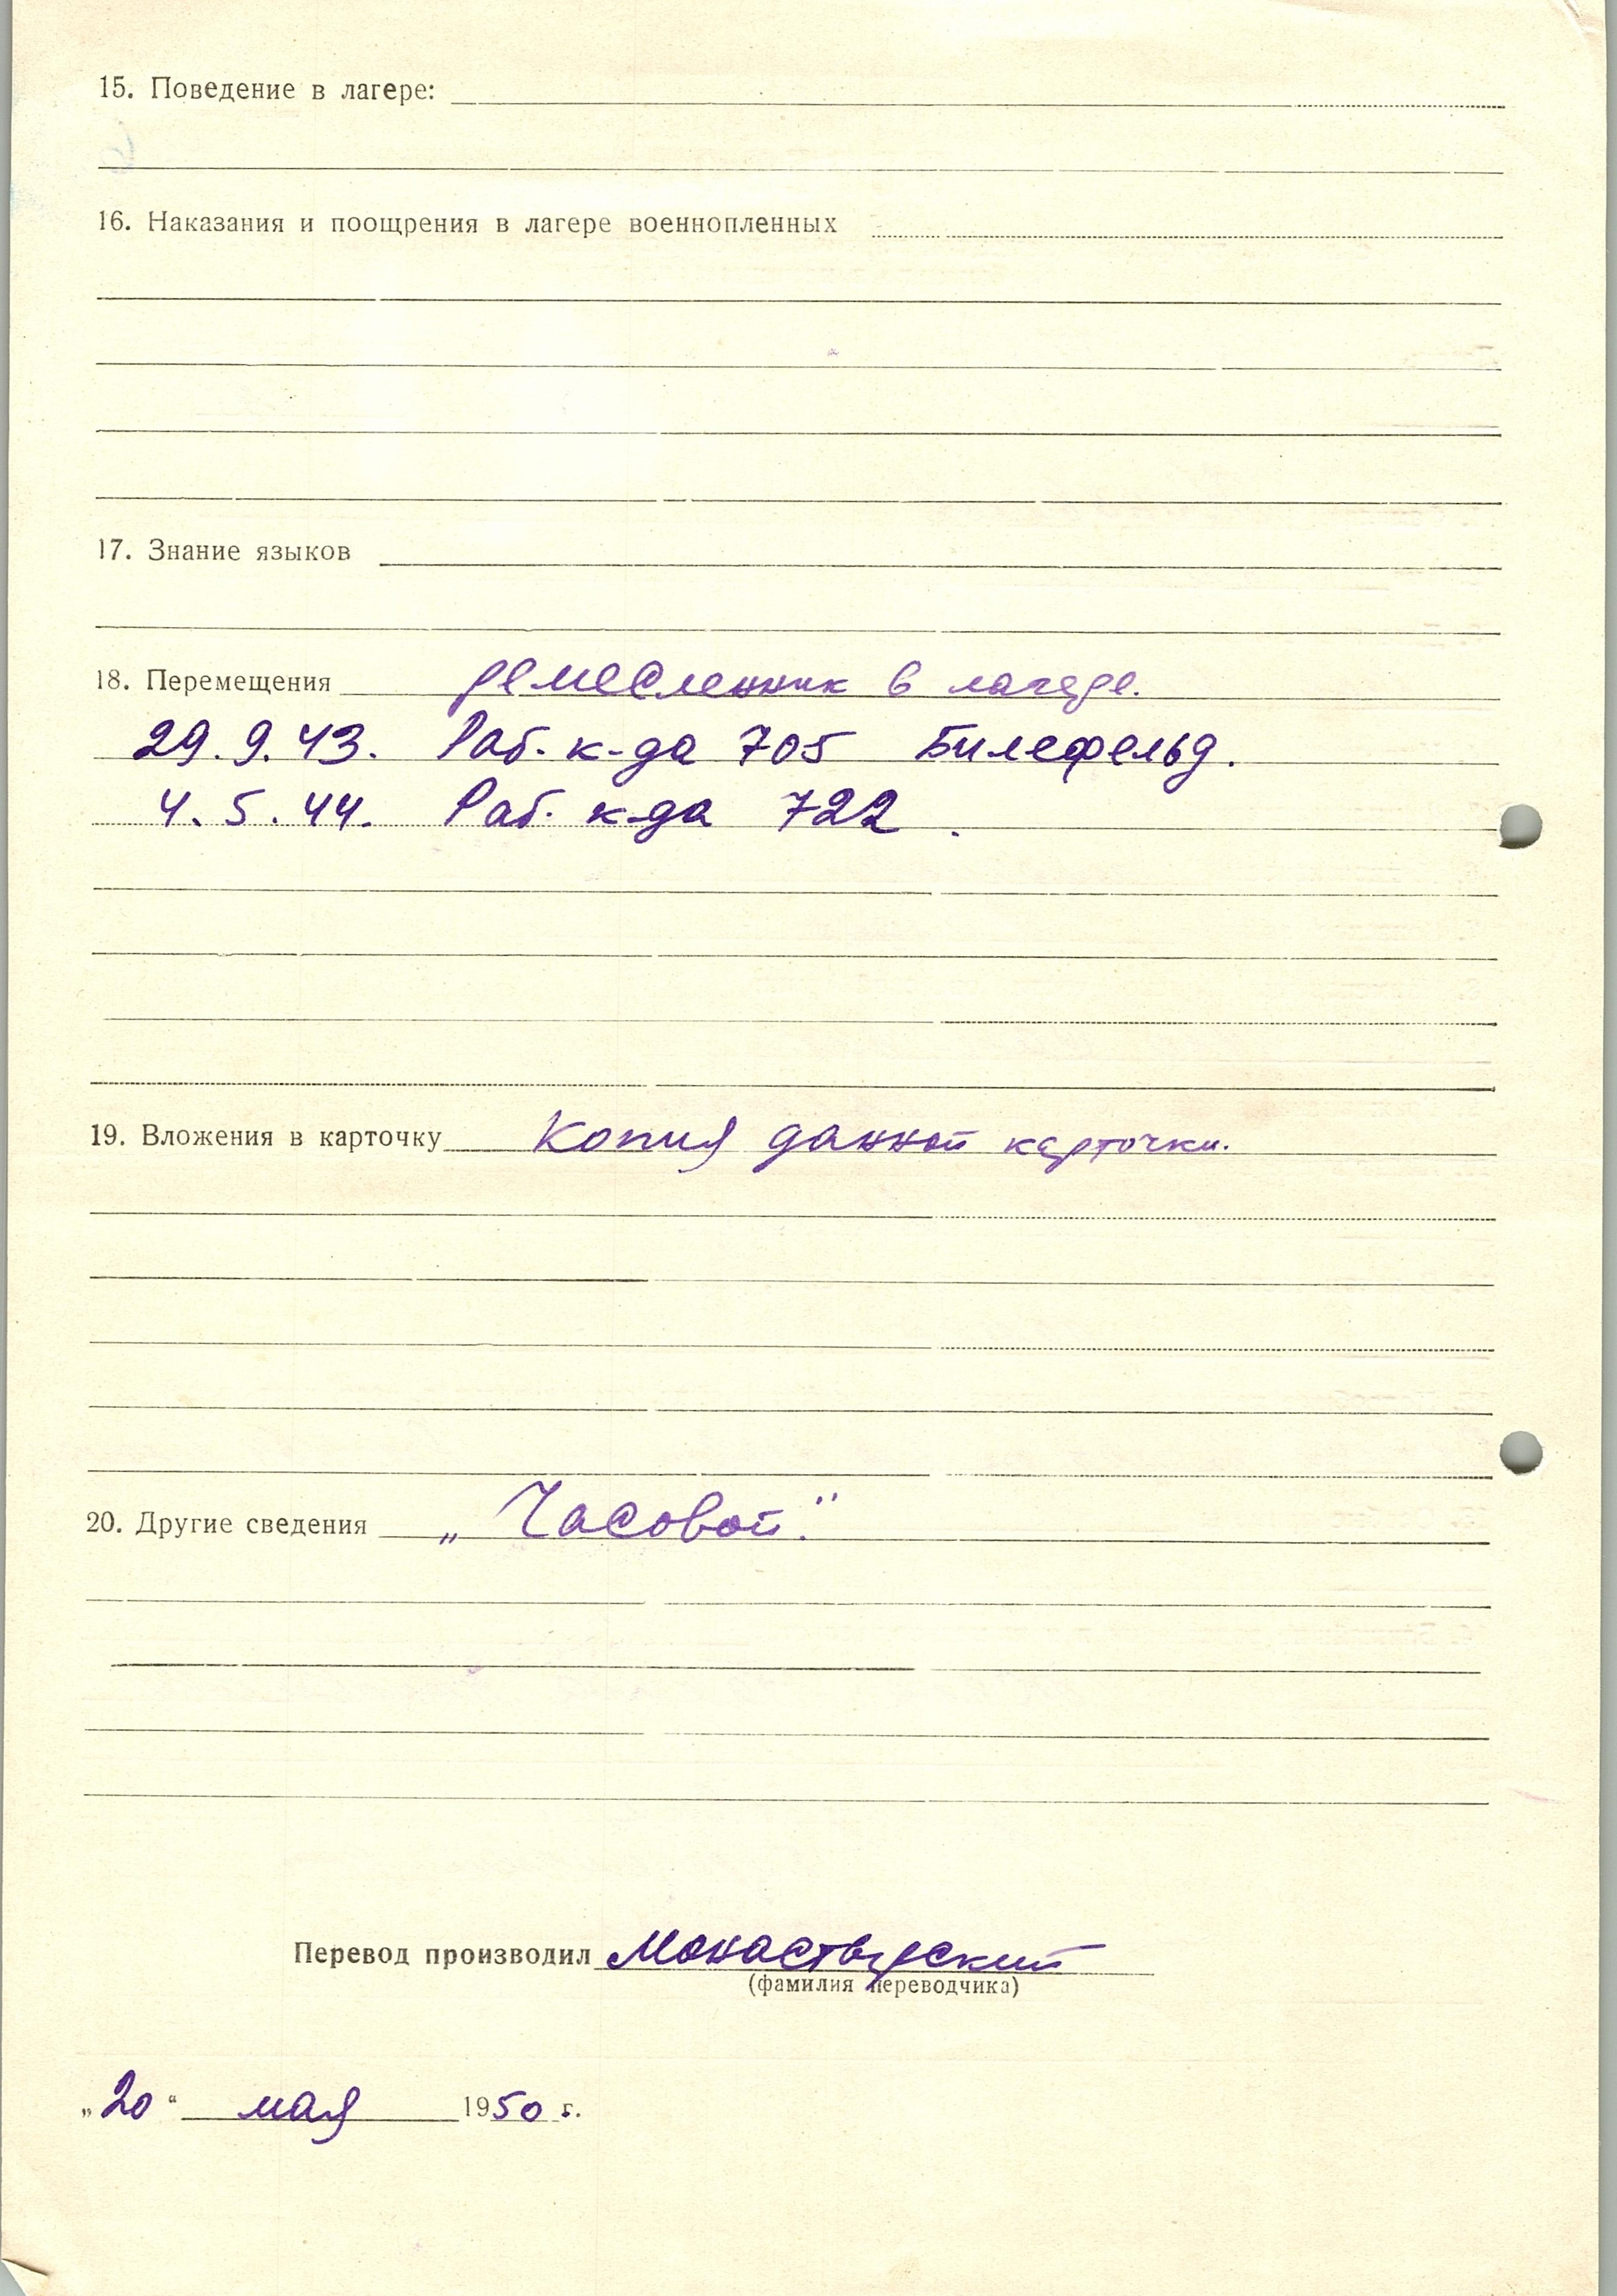 15. Поведение в лагере:
16. Наказания и поощрения в лагере военнопленных
17. Знание языков
18. Перемещения ремесленник в лагере.
29.9.43. Раб. к-да 705 Билефельд.
4.5.44. Раб. к-да 722.
19. Вложения в карточку Копия данной карточки.
20. Другие сведения „Часовой."
Перевод производил Монастырский
(фамилия переводчика)
„20“ мая 1950 г.